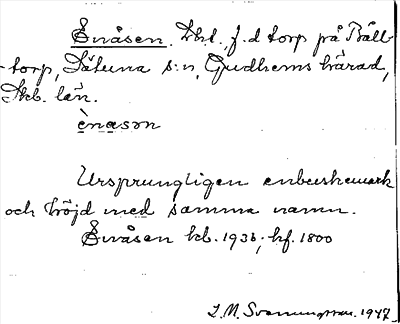 Enåsen. Lht., f.d torp på Bäll-
torp, Sätuna s:n, Gudhems härad,
Skb. län.
ènasən
Ursprungligen enbuskemark
och höjd med samma namn.
Enåsen kb. 1936, hf. 1800
J. M. 1947.